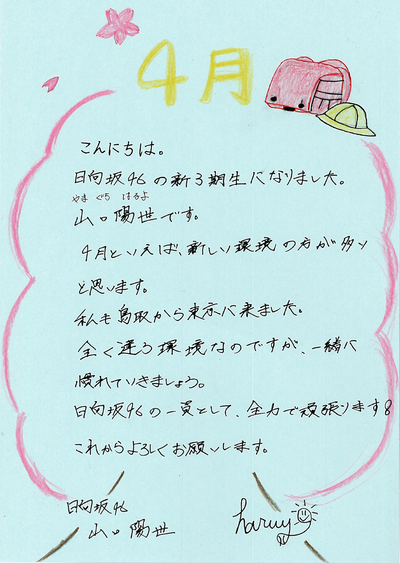 4月
こんにちは。
日向坂46の新3期生になりました。
やま ぐち はるよ
山口陽世です。
4月といえば、新しい環境の方が多い
と思います。
私も鳥取から東京に来ました。
全く違う環境なのですが、一緒に
慣れていきましょう。
日向坂46の一員として、全力で頑張ります
これからよろしくお願いします。
日向坂46
山口陽世
haruyo